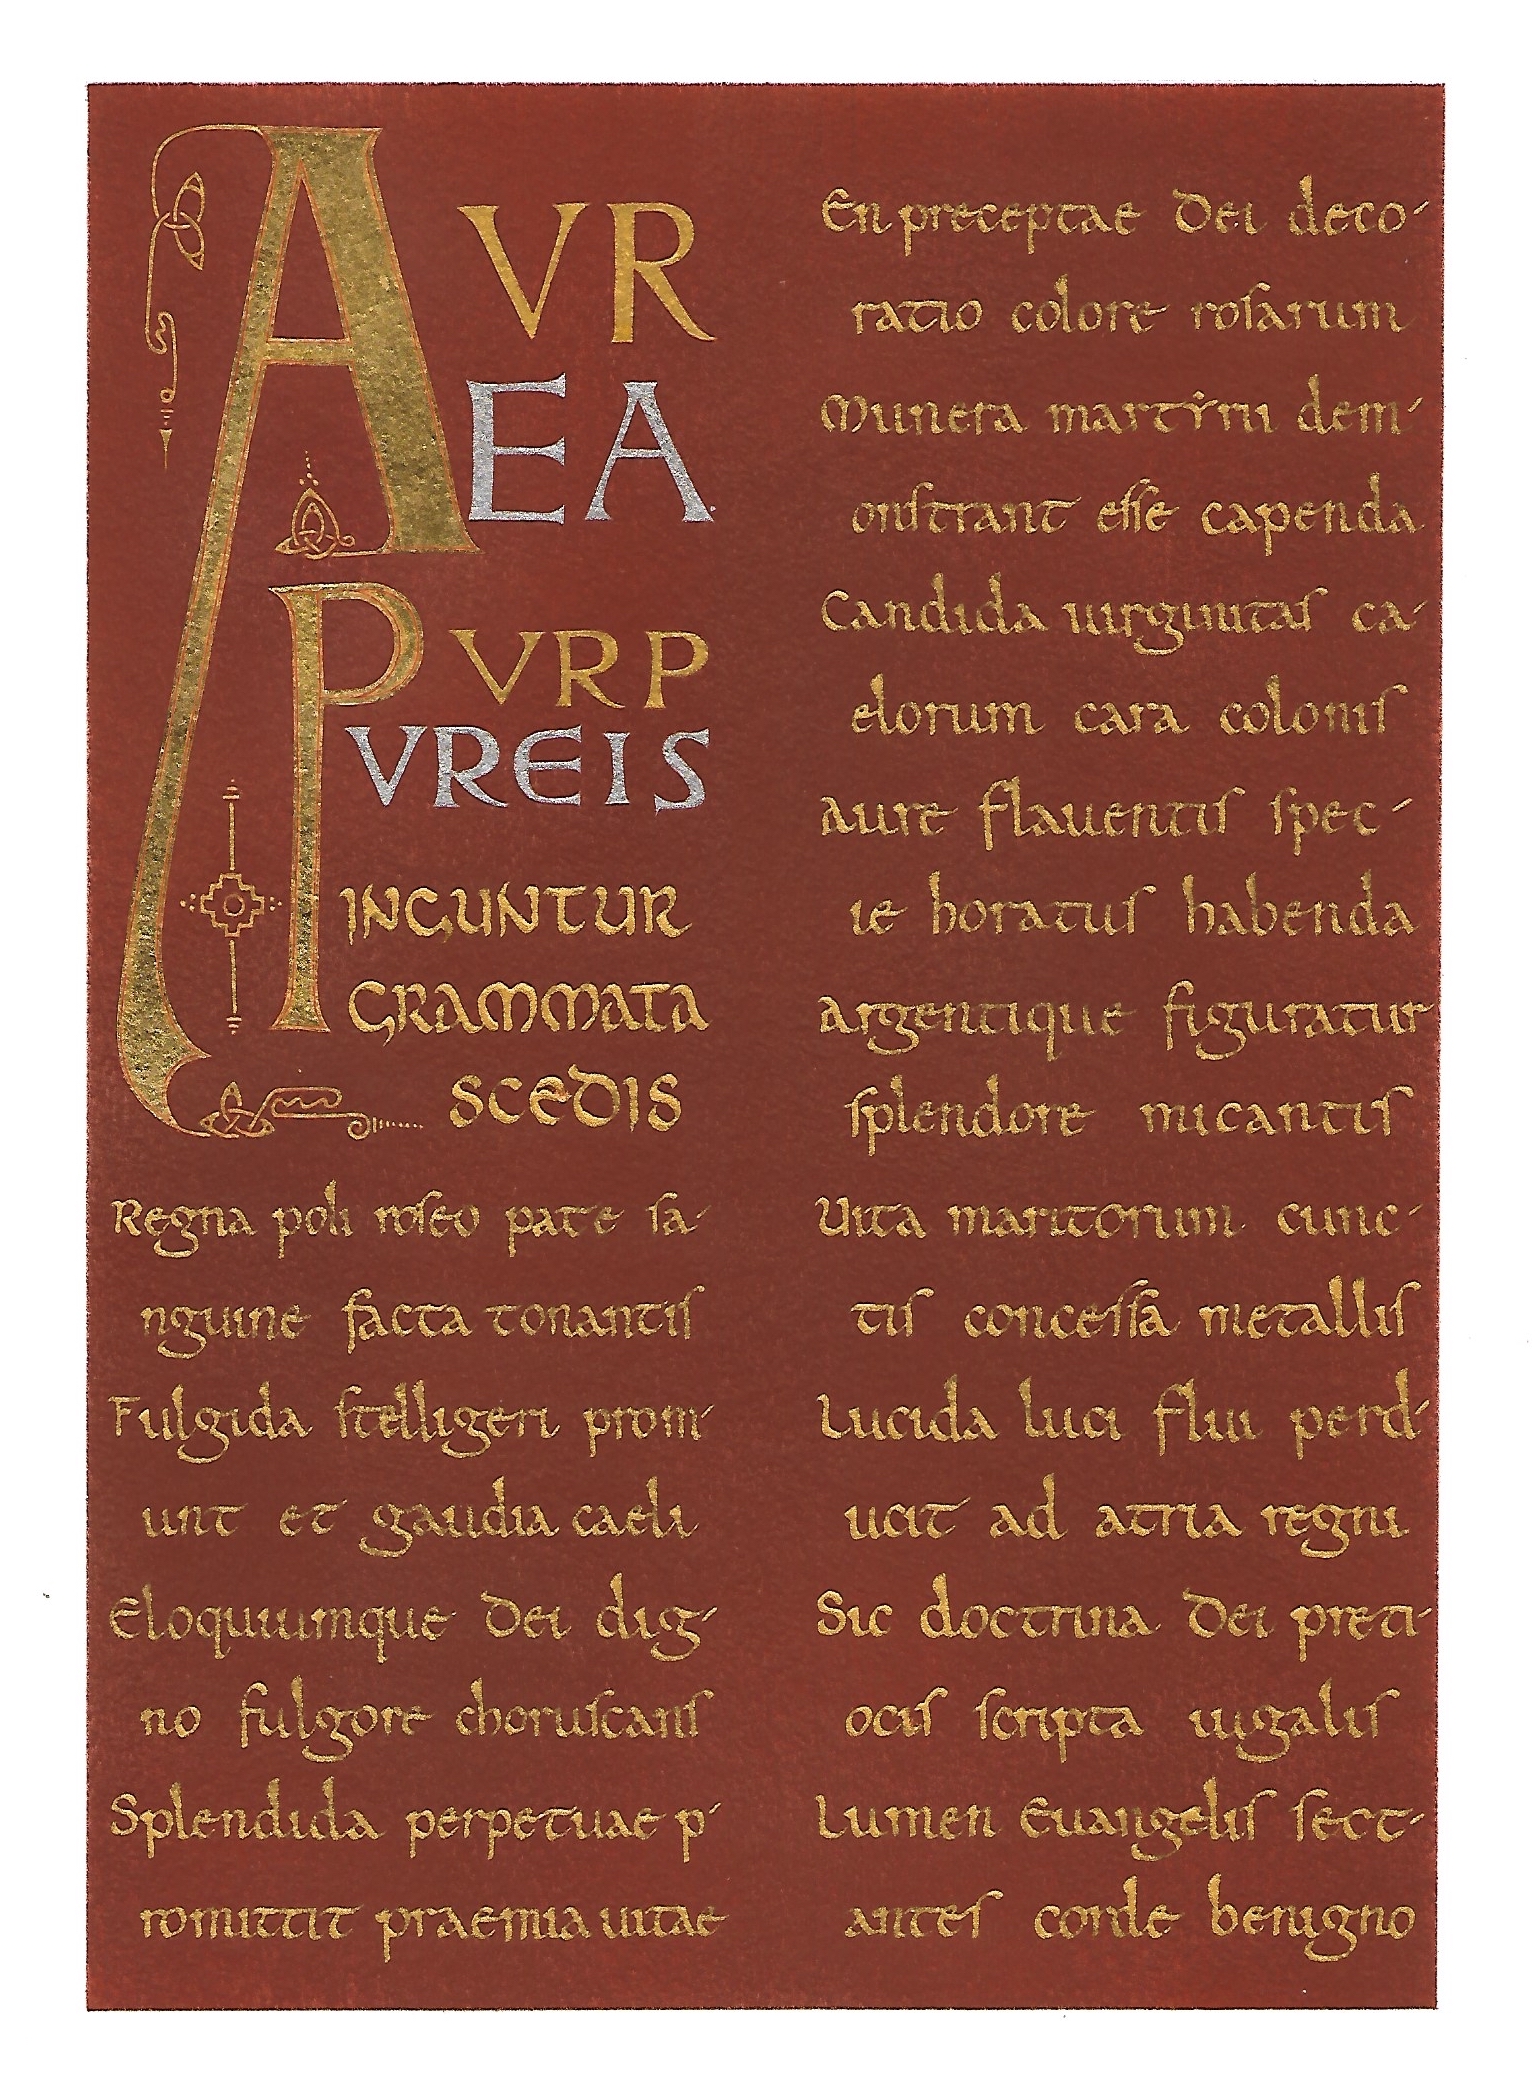 AVR
EA
PVRP
VREIS
PINGUNTUR
GRAMMATA
SCEDIS
Regna poli roseo pate sa-
nguine facta tonantis
Fulgida stelligeri prom-
unt et gaudia caeli
Eloquiumque Dei dig-
no fulgore choruscans
Splendida perpetuae p-
romittit praemia uitae
En preceptae Dei deco-
ratio colore rosarum
Munera martyrii dem-
onstrant esse capenda
Candida uirginitas ca-
elorum cara colonis
Aure flauentis spec-
ie horatus habenda
Argentique figuratur
splendore micantis
Uita maritorum cunc-
tis concessa metallis
Lucida luci flui perd-
ucit ad atria regni
Sic doctrina Dei preti-
ocis scripta uigalis
Lumen Euangelis sect-
antes corde benigno